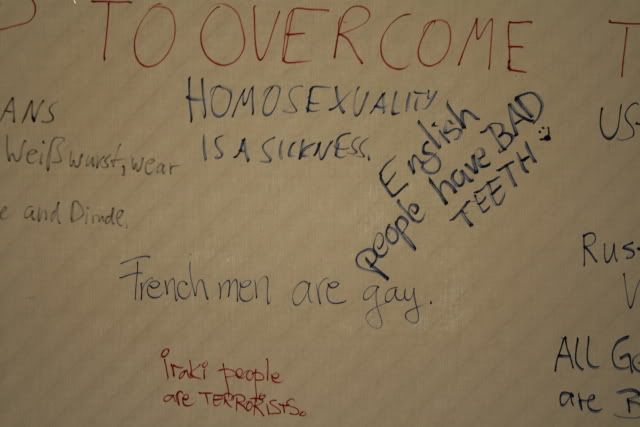 TO OVERCOME T
ANS
Weißwurst, wear
e and Dirndle.
HOMOSEXUALITY
IS A SICKNESS.
English
people have BAD
TEETH
US-
Frenchmen are gay.
Rus-
iraki people
are TERRORISTS.
All Ge
are B